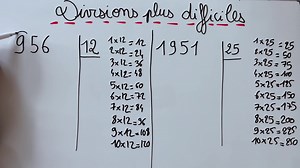 Divisions plus difficiles
956
12
1x12=12
2x12=24
3x12=36
4x12=48
5x12=60
6x12=72
7x12=84
8x12=96
9x12=108
10x12=120
1951
25
1x25=25
2x25=50
3x25=75
4x25=100
5x25=125
6x25=150
7x25=175
8x25=200
9x25=225
10x25=250